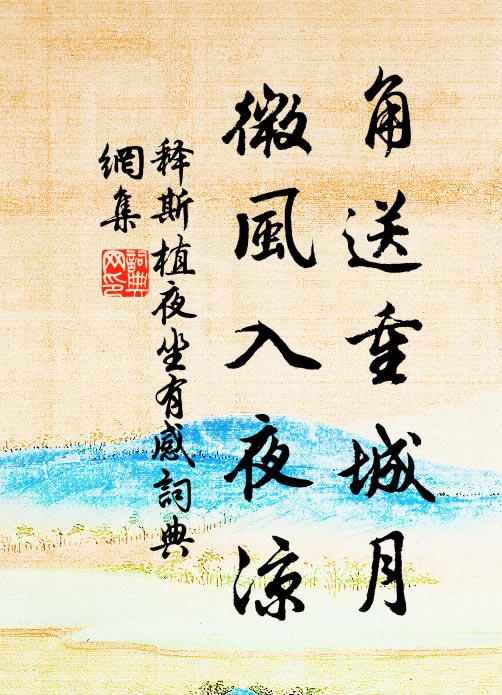 角送重城月
微風入夜凉
釋斯植夜坐有感詞典
網集
詞典
网印